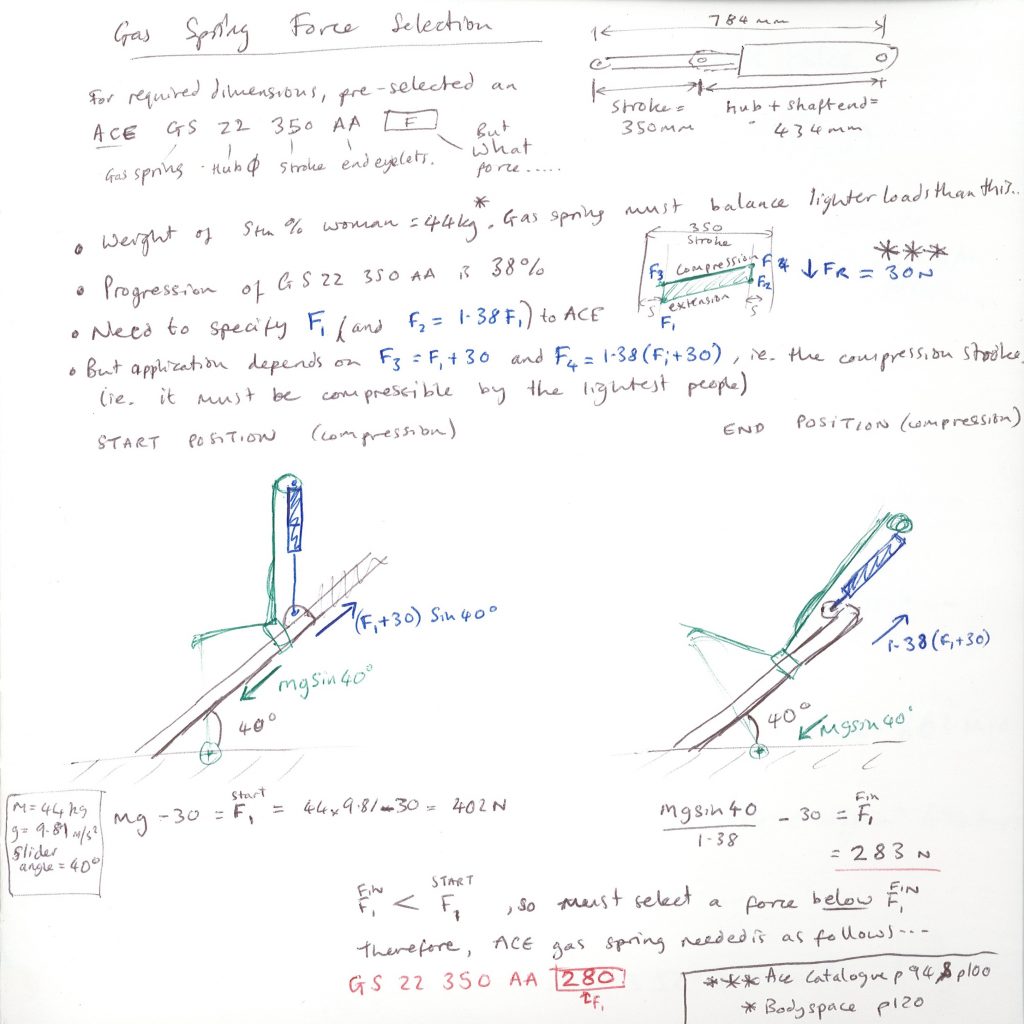 Gas Spring Force Selection
784mm
For required dimensions, pre-selected an
ACE GS 22 350 AA F
Gas spring Hub φ Stroke end eyelets.
But
What
force.....
Stroke =
350mm
hub + shaft end =
434mm
• Weight of 5th % woman = 44kg*. Gas spring must balance lighter loads than this..
• Progression of GS 22 350 AA is 38%
350
stroke
F3 compression F4
F2
S extension S
F1
↓ FR = 30N ***
• Need to specify F1 (and F2 = 1.38F1) to ACE
• But application depends on F3 = F1 + 30 and F4 = 1.38(F1+30), ie. the compression stroke.
(ie. it must be compressible by the lightest people)
START POSITION (compression)
END POSITION (compression)
(F1+30) Sin 40°
mg sin 40°
40°
1.38 (F1+30)
40°
Mgsin 40°
M = 44 kg
g = 9.81 m/s²
slider
angle = 40°
Mg - 30 = F1 Start = 44 x 9.81 - 30 = 402 N
mg sin 40 / 1.38 - 30 = F1 Fin
= 283 N
F1 Fin < F1 START, so must select a force below F1 FIN
therefore, ACE gas spring needed is as follows...
GS 22 350 AA 280
↑F1
*** Ace Catalogue p 94 & p100
* Bodyspace p120